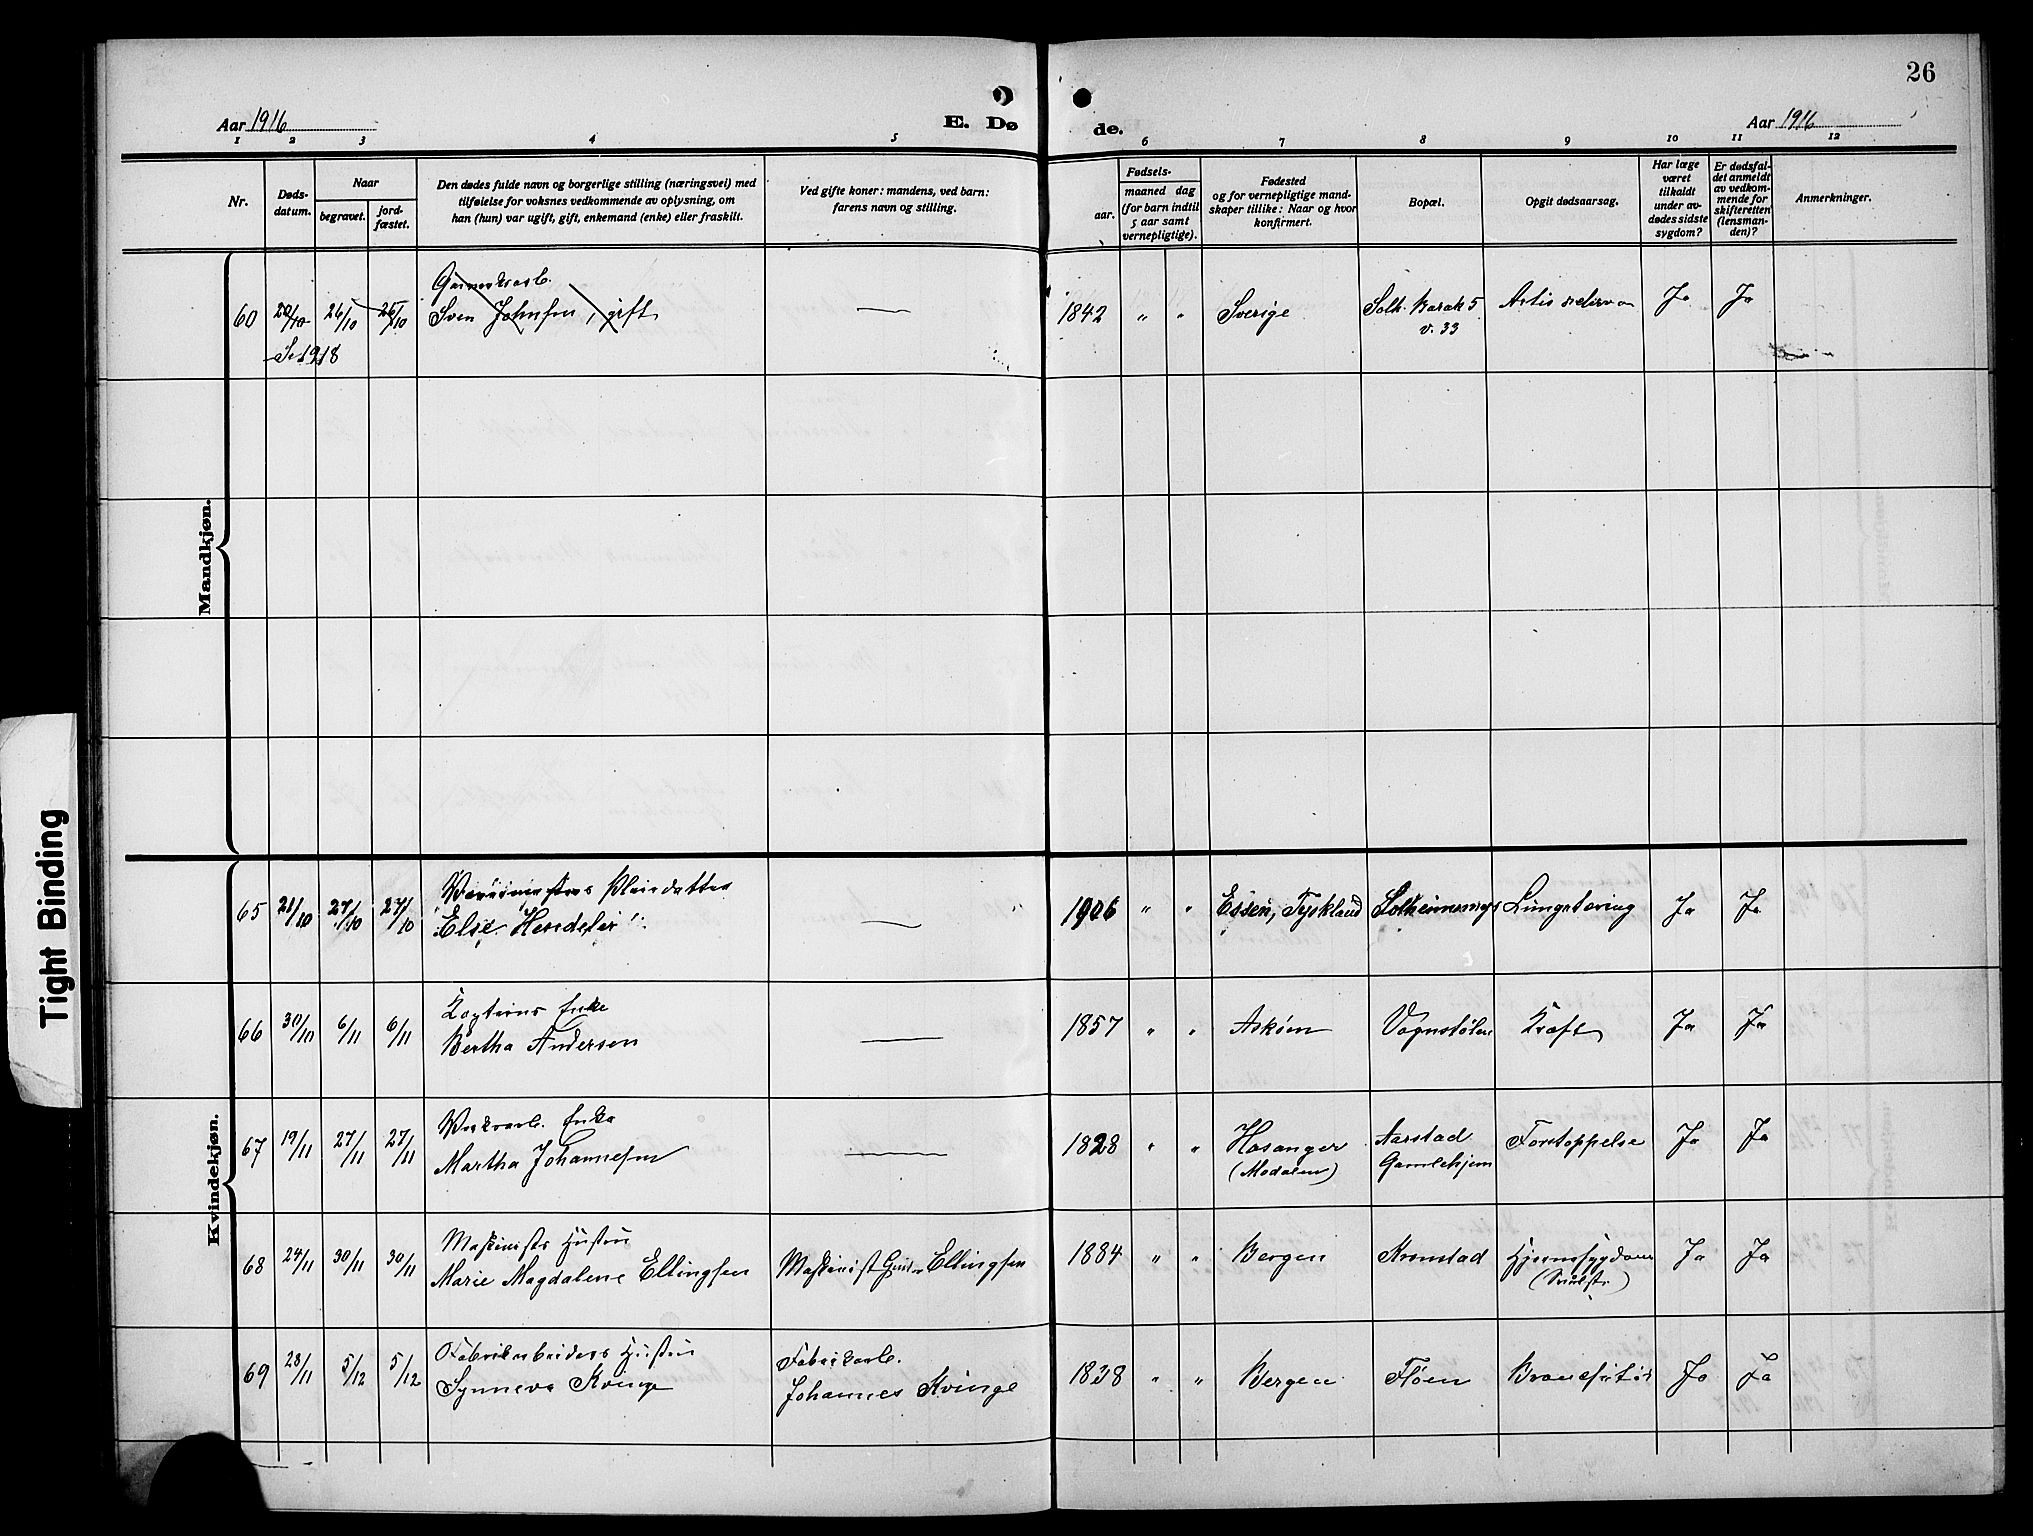 26
Aar 1916
E. Dø
de.
Aar 1916
1 2 3 4 5 6 7 8 9 10 11 12
Nr.
Dødsdatum.
Naar
begravet.
jordfæstet.
Den dødes fulde navn og borgerlige stilling (næringsvei) med
tilføielse for voksnes vedkommende av oplysning, om
han (hun) var ugift, gift, enkemand (enke) eller fraskilt.
Ved gifte koner: mandens, ved barn:
farens navn og stilling.
Fødsels-
aar.
maaned dag
(for barn indtil
5 aar samt
vernepligtige).
Fødested
og for vernepligtige mand-
skaper tillike: Naar og hvor
konfirmert.
Bopæl.
Opgit dødsaarsag.
Har læge
været
tilkaldt
under av-
dødes sidste
sygdom?
Er dødsfal-
det anmeldt
av vedkom-
mende for
skifteretten
(lensman-
den)?
Anmerkninger.
Mandkjøn.
60 20/10 26/10 26/10 Sven Johnsen, gift — 1842 " " Sverige Solh. Barak 5 Ja Ja
v. 33
S. 1918
Tight Binding
Kvindekjøn.
65 21/10 27/10 27/10 Else — 1906 " " Essen, Tyskland Ja Ja
66 30/10 6/11 6/11 Enke
Bertha Andersen — 1857 " " Askøen Vognstølen Kræft Ja Ja
67 19/11 27/11 27/11 Verksarb. Enke
Martha Johannesen — 1828 " " Hosanger Aarstad Forstoppelse Ja Ja
(Modalen) Gamlehjem
68 24/11 30/11 30/11 Maskinists Hustru
Marie Magdalene Ellingsen Maskinist Ellingsen 1884 " " Bergen Kronstad Hjernesygdom Ja Ja
69 28/11 5/12 5/12 Fabrikarbeiders Hustru Fabrikarb.
Synneva Kvinge Johannes Kvinge 1838 " " Bergen Fløen Ja Ja